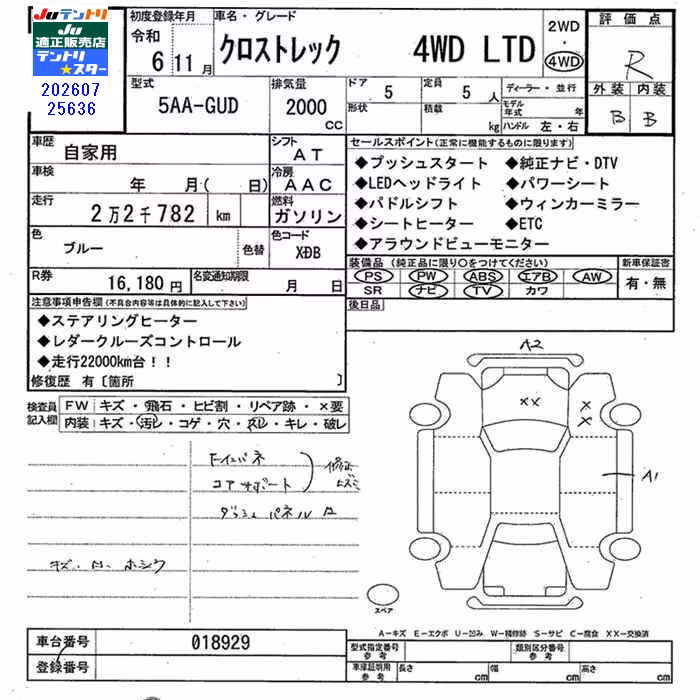 Juテントリ
Ju
適正販売店
テントリ
★スター
202607
25636
初度登録年月
令和
6 11月
車名・グレード
クロストレック 4WD LTD
2WD
・
4WD
評価点
R
外装 内装
B B
型式
5AA-GUD
排気量
2000
CC
ドア
5
定員
5 人
ディーラー・並行
形状
積載
kg
モデル年式 年
ハンドル 左・右
車歴
自家用
シフト
AT
車検
年 月( 日)
冷房
AAC
走行
2万2千782 km
燃料
ガソリン
色
ブルー
色替
色コード
XDB
R券
16,180円
名変通知期限
月 日
セールスポイント(正常に機能するものに限ります)
◆プッシュスタート ◆純正ナビ・DTV
◆LEDヘッドライト ◆パワーシート
◆パドルシフト ◆ウィンカーミラー
◆シートヒーター ◆ETC
◆アラウンドビューモニター
装備品(純正品に限り○をつけてください)
PS PW ABS エアB AW
SR ナビ TV カワ
新車保証書
有・無
後日品
注意事項申告欄(不具合内容等は具体的に記入して下さい)
◆ステアリングヒーター
◆レダークルーズコントロール
◆走行22000km台!!
修復歴 有〔箇所 〕
検査員
記入欄
FW キズ・飛石・ヒビ割・リペア跡・×要
内装 キズ・汚レ・コゲ・穴・スレ・キレ・破レ
コアサポート
ダッシュパネル
A2
XX
X
X
A1
スペア
A−キズ E−エクボ U−凹み W−補修跡 S−サビ C−腐食 XX−交換済
車台番号
018929
登録番号
型式指定番号
参考
類別区分番号
参考
車庫証明用
参考
長さ cm 幅 cm 高さ cm